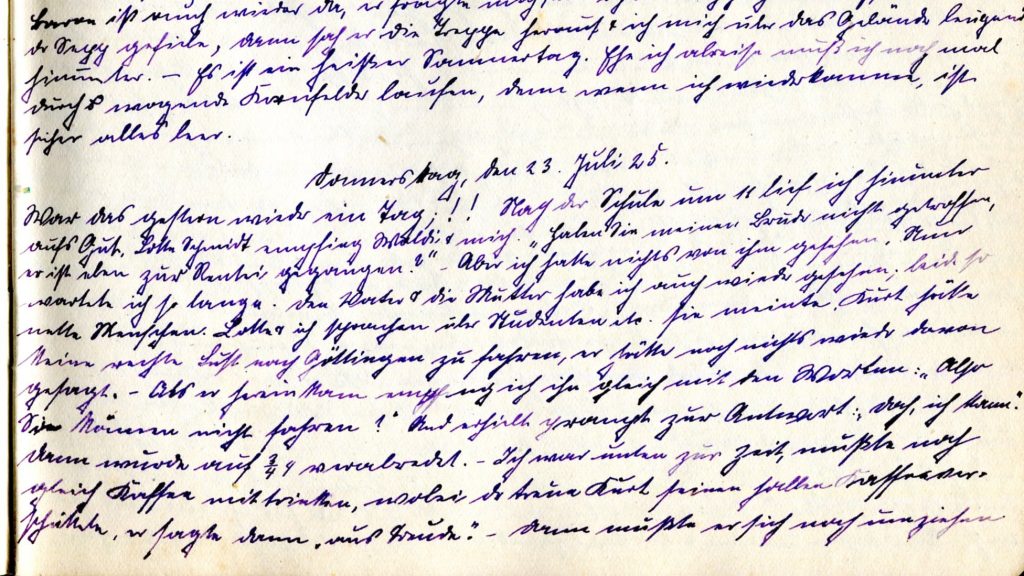 Baron ist auch wieder da, er fragte
der Sepp gefiele, dann sah er die Treppe herauf & ich mich über das Gelände beugend
hinunter. – Es ist ein heißer Sommertag. Ehe ich abreise muß ich noch mal
durchs wogende Kornfelder laufen, denn wenn ich wiederkomme, ist
sicher alles leer.
Donnerstag, den 23. Juli 25.
War das gestern wieder ein Tag,!!! Nach der Schule um 11 lief ich hinunter
aufs Gut, Lotte Schmidt empfing Waldi & mich. „Haben Sie meinen Bruder nicht getroffen,
er ist eben zur Rentei gegangen?" – Aber ich hatte nichts von ihm gesehen. Nun
wartete ich so lange. Den Vater & die Mutter habe ich auch wieder gesehen, beide so
nette Menschen. Lotte & ich sprachen über Studenten etc. Sie meinte, Kurt hätte
keine rechte Lust nach Göttingen zu fahren, er hätte noch nichts wieder davon
gesagt. – Als er hereinkam empfing ich ihn gleich mit den Worten: „Also
Sie können nicht fahren?" Und erhielt prompt zur Antwort: „doch, ich kann".
Dann wurde auf ¾ 4 verabredet. – Ich war unten zur Zeit, mußte noch
gleich Kaffee mittrinken, wobei der treue Kurt seinen halben Kaffee ver-
schüttete, er sagte dann „aus Freude". – Dann mußte er sich noch umziehen